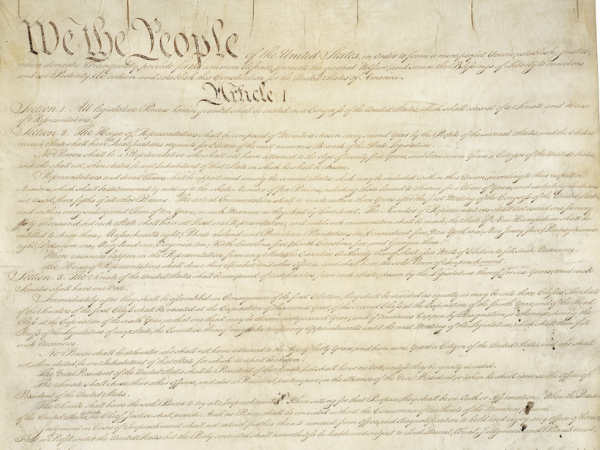 We the People of the United States, in Order to form a more perfect Union, establish Justice,
insure domestic Tranquility, provide for the common defence, promote the general Welfare, and secure the Blessings of Liberty to ourselves
and our Posterity, do ordain and establish this Constitution for the United States of America.
Article. I.
Section. 1. All legislative Powers herein granted shall be vested in a Congress of the United States, which shall consist of a Senate and House
of Representatives.
Section. 2. The House of Representatives shall be composed of Members chosen every second Year by the People of the several States, and the Electors
in each State shall have Qualifications requisite for Electors of the most numerous Branch of the State Legislature.
No Person shall be a Representative who shall not have attained to the Age of twenty five Years, and been seven Years a Citizen of the United States,
and who shall not, when elected, be an Inhabitant of that State in which he shall be chosen.
Representatives and direct Taxes shall be apportioned among the several States which may be included within this Union, according to their respective
Numbers, which shall be determined by adding to the whole Number of free Persons, including those bound to Service for a Term of Years, and excluding Indians
not taxed, three fifths of all other Persons. The actual Enumeration shall be made within three Years after the first Meeting of the Congress of the United States,
and within every subsequent Term of ten Years, in such Manner as they shall by Law direct. The Number of Representatives shall not exceed one for every
Representative; and until such enumeration shall be made, the State of New Hampshire shall be
entitled to chuse three, Massachusetts eight, Rhode Island and Providence Plantations one, Connecticut five, New York six, New Jersey four, Pennsylvania
eight, Delaware one, Maryland six, Virginia ten, North Carolina five, South Carolina five, and Georgia three.
When vacancies happen in the Representation from any State, the Executive Authority thereof shall issue Writs of Election to fill such Vacancies.
The House of Representatives shall chuse their Speaker and other Officers; and shall have the sole Power of Impeachment.
Section. 3. The Senate of the United States shall be composed of two Senators from each State, chosen by the Legislature thereof, for six Years; and each
Senator shall have one Vote.
Immediately after they shall be assembled in Consequence of the first Election, they shall be divided as equally as may be into three Classes. The Seats
of the Senators of the first Class shall be vacated at the Expiration of the second Year, of the second Class at the Expiration of the fourth Year, and of the third
Class at the Expiration of the sixth Year, so that one third may be chosen every second Year; and if Vacancies happen by Resignation, or otherwise, during the
Recess of the Legislature of any State, the Executive thereof may make temporary Appointments until the next Meeting of the Legislature, which shall then fill
such Vacancies.
No Person shall be a Senator who shall not have attained to the Age of thirty Years, and been nine Years a Citizen of the United States, and who shall
not, when elected, be an Inhabitant of that State for which he shall be chosen.
The Vice President of the United States shall be President of the Senate, but shall have no Vote, unless they be equally divided.
The Senate shall chuse their other Officers, and also a President pro tempore, in the Absence of the Vice President, or when he shall exercise the Office of
President of the United States.
The Senate shall have the sole Power to try all Impeachments. When sitting for that Purpose, they shall be on Oath or Affirmation. When the President
of the United States is tried, the Chief Justice shall preside: And no Person shall be convicted without the Concurrence of two thirds of the Members present.
Judgment in Cases of Impeachment shall not extend further than to removal from Office, and disqualification to hold and enjoy any Office of honor,
Trust or Profit under the United States: but the Party convicted shall nevertheless be liable and subject to Indictment, Trial, Judgment and Punishment,